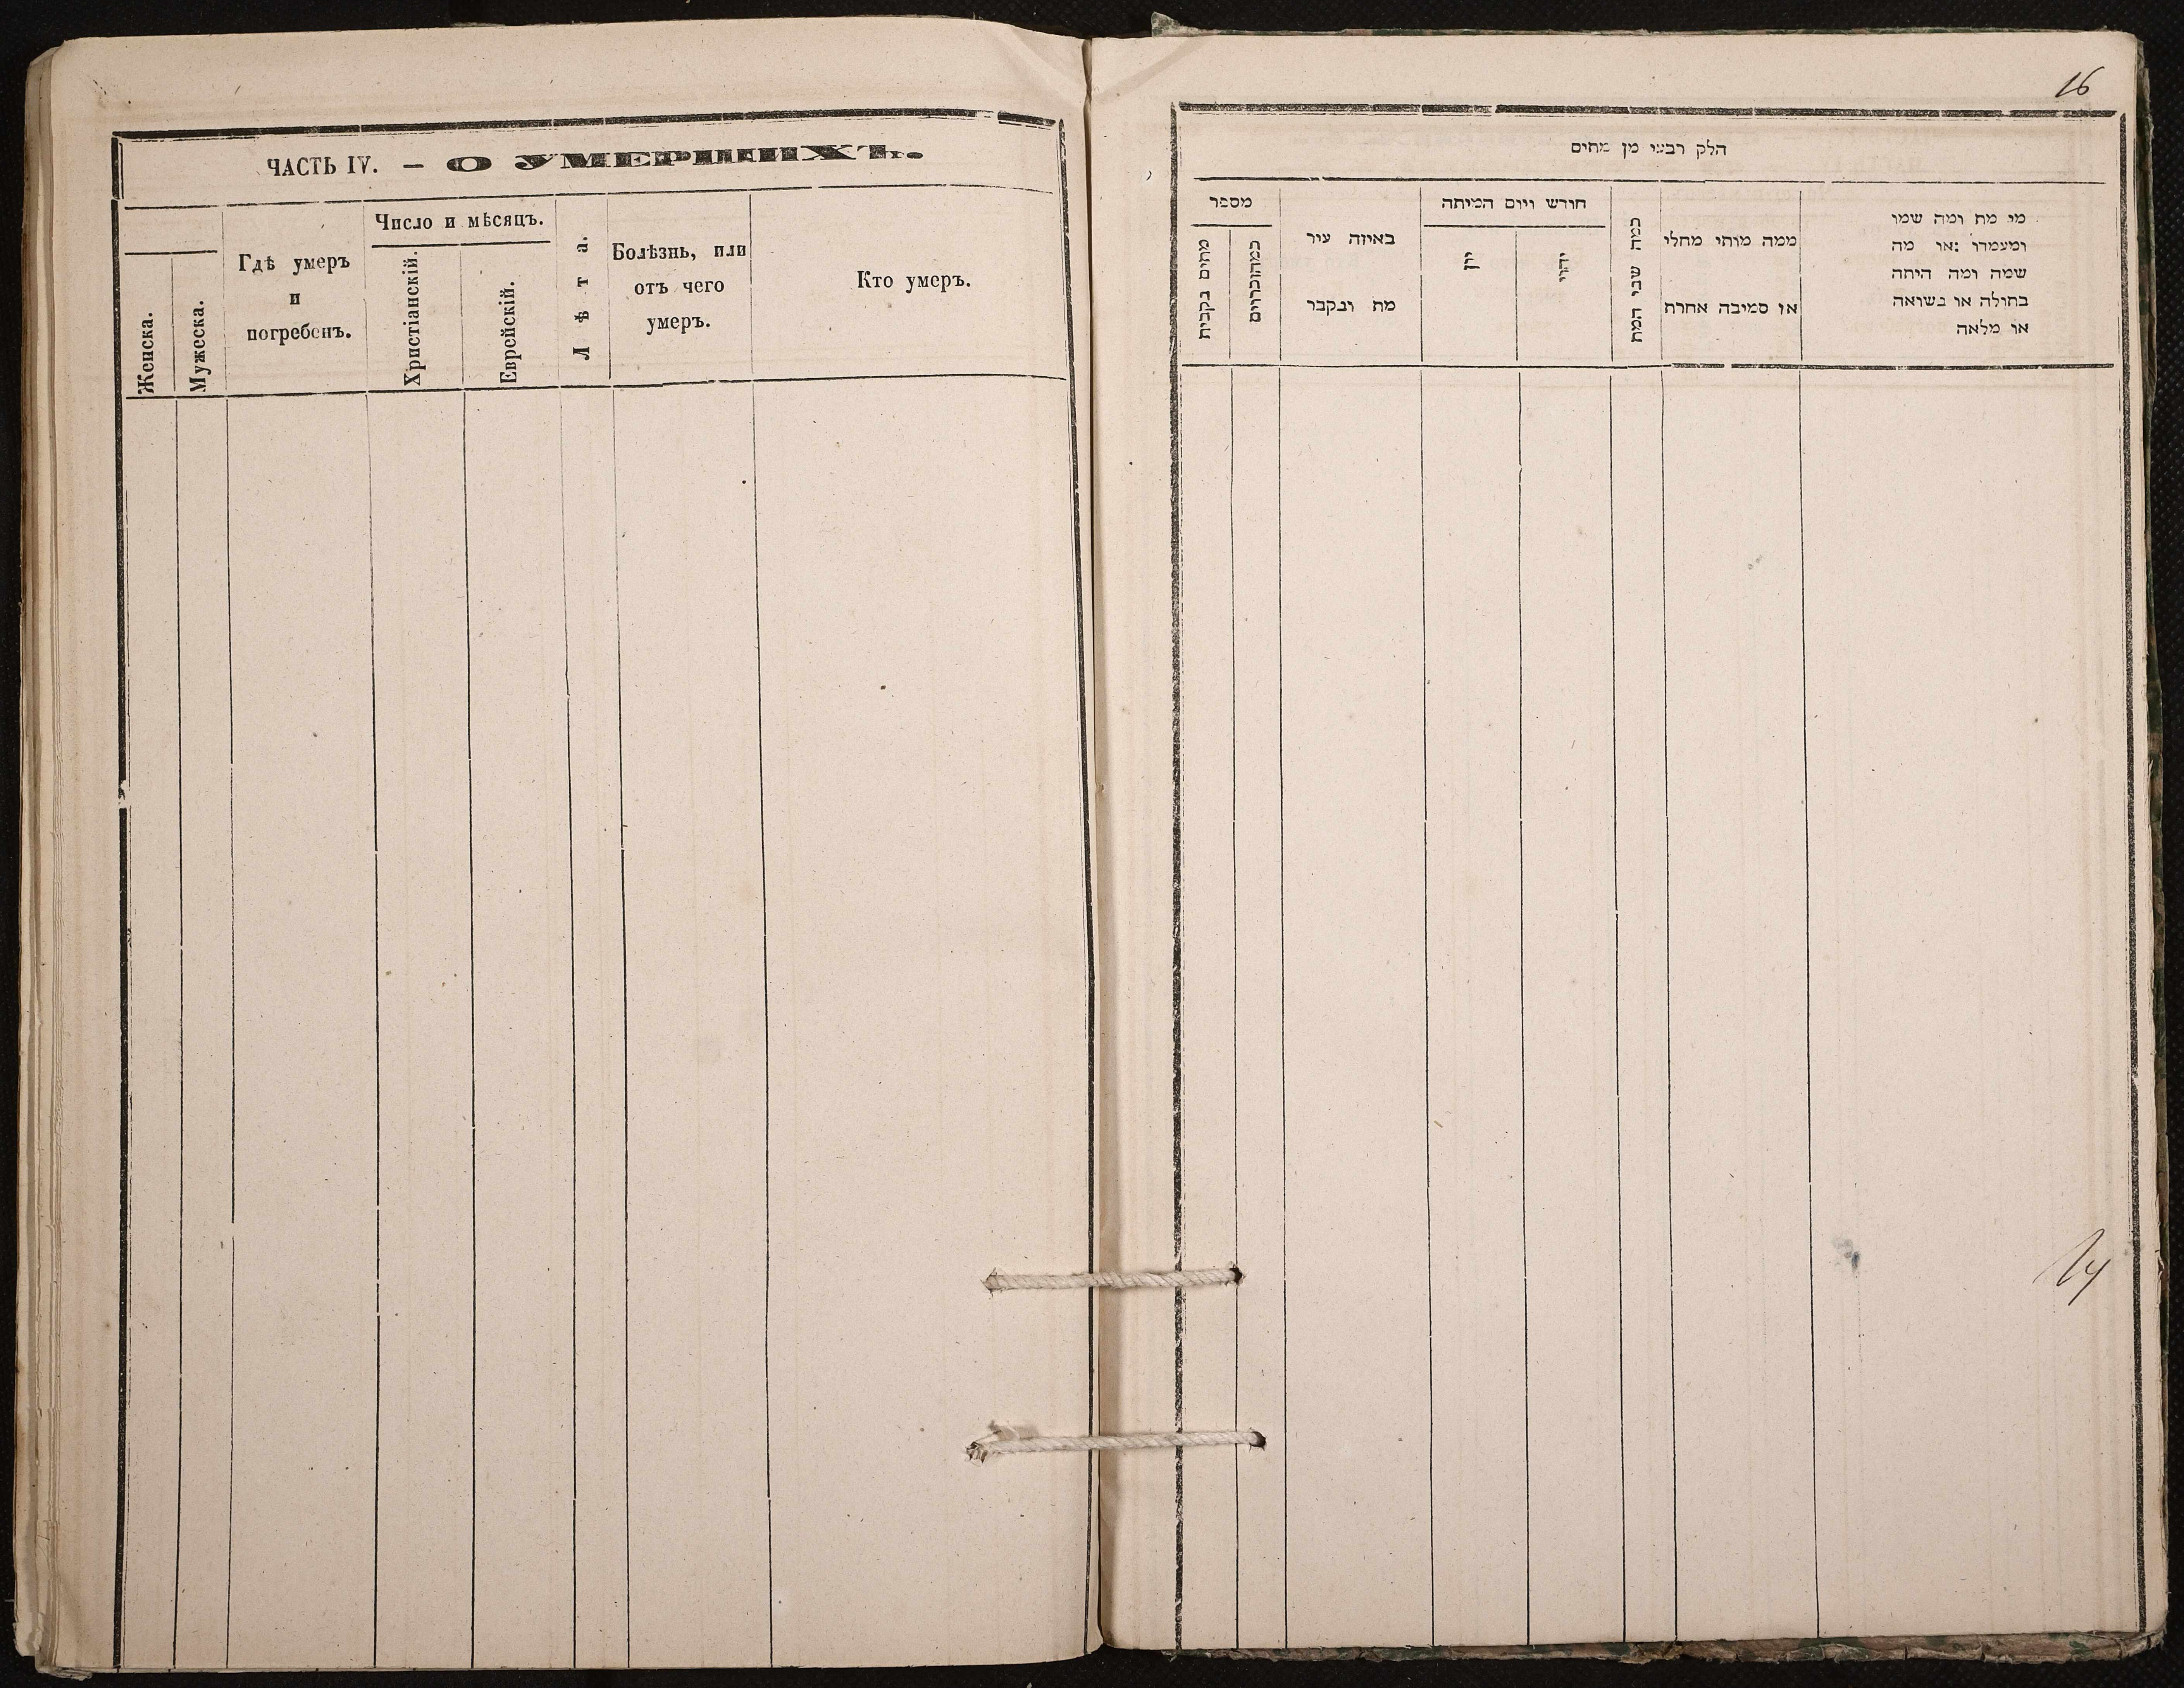 ЧАСТЬ IV. — О УМЕРШИХЪ.
Женска.
Мужеска.
Гдѣ умеръ
и
погребенъ.
Число и мѣсяцъ.
Христіанскій.
Еврейскій.
Лѣта.
Болѣзнь, или
отъ чего
умеръ.
Кто умеръ.
16
הלק רבעי מן מתים
מספר
באיזה עיר
מת ונקבר
חורש ויום המיתה
יון
יהודי
כמה שני המת
ממה מותי מחלי
או סמיבה אחרת
מי מת ומה שמו
ומעמרו :או מה
שמה ומה היתה
בתולה או נשואה
או מלאה